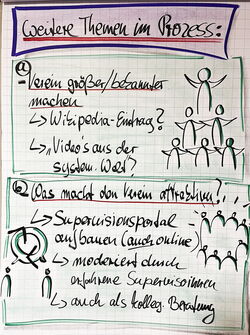 weitere Themen im Prozess:
a
- Verein größer/bekannter
machen
↳ Wikipedia-Eintrag?
↳ „Video's aus der
system. Welt"?
b) Was macht den Verein attraktiver?
↳ Supervisionsportal
aufbauen (auch online)
↳ moderiert durch
erfahrene Supervisorinnen
↳ auch als kolleg. Beratung